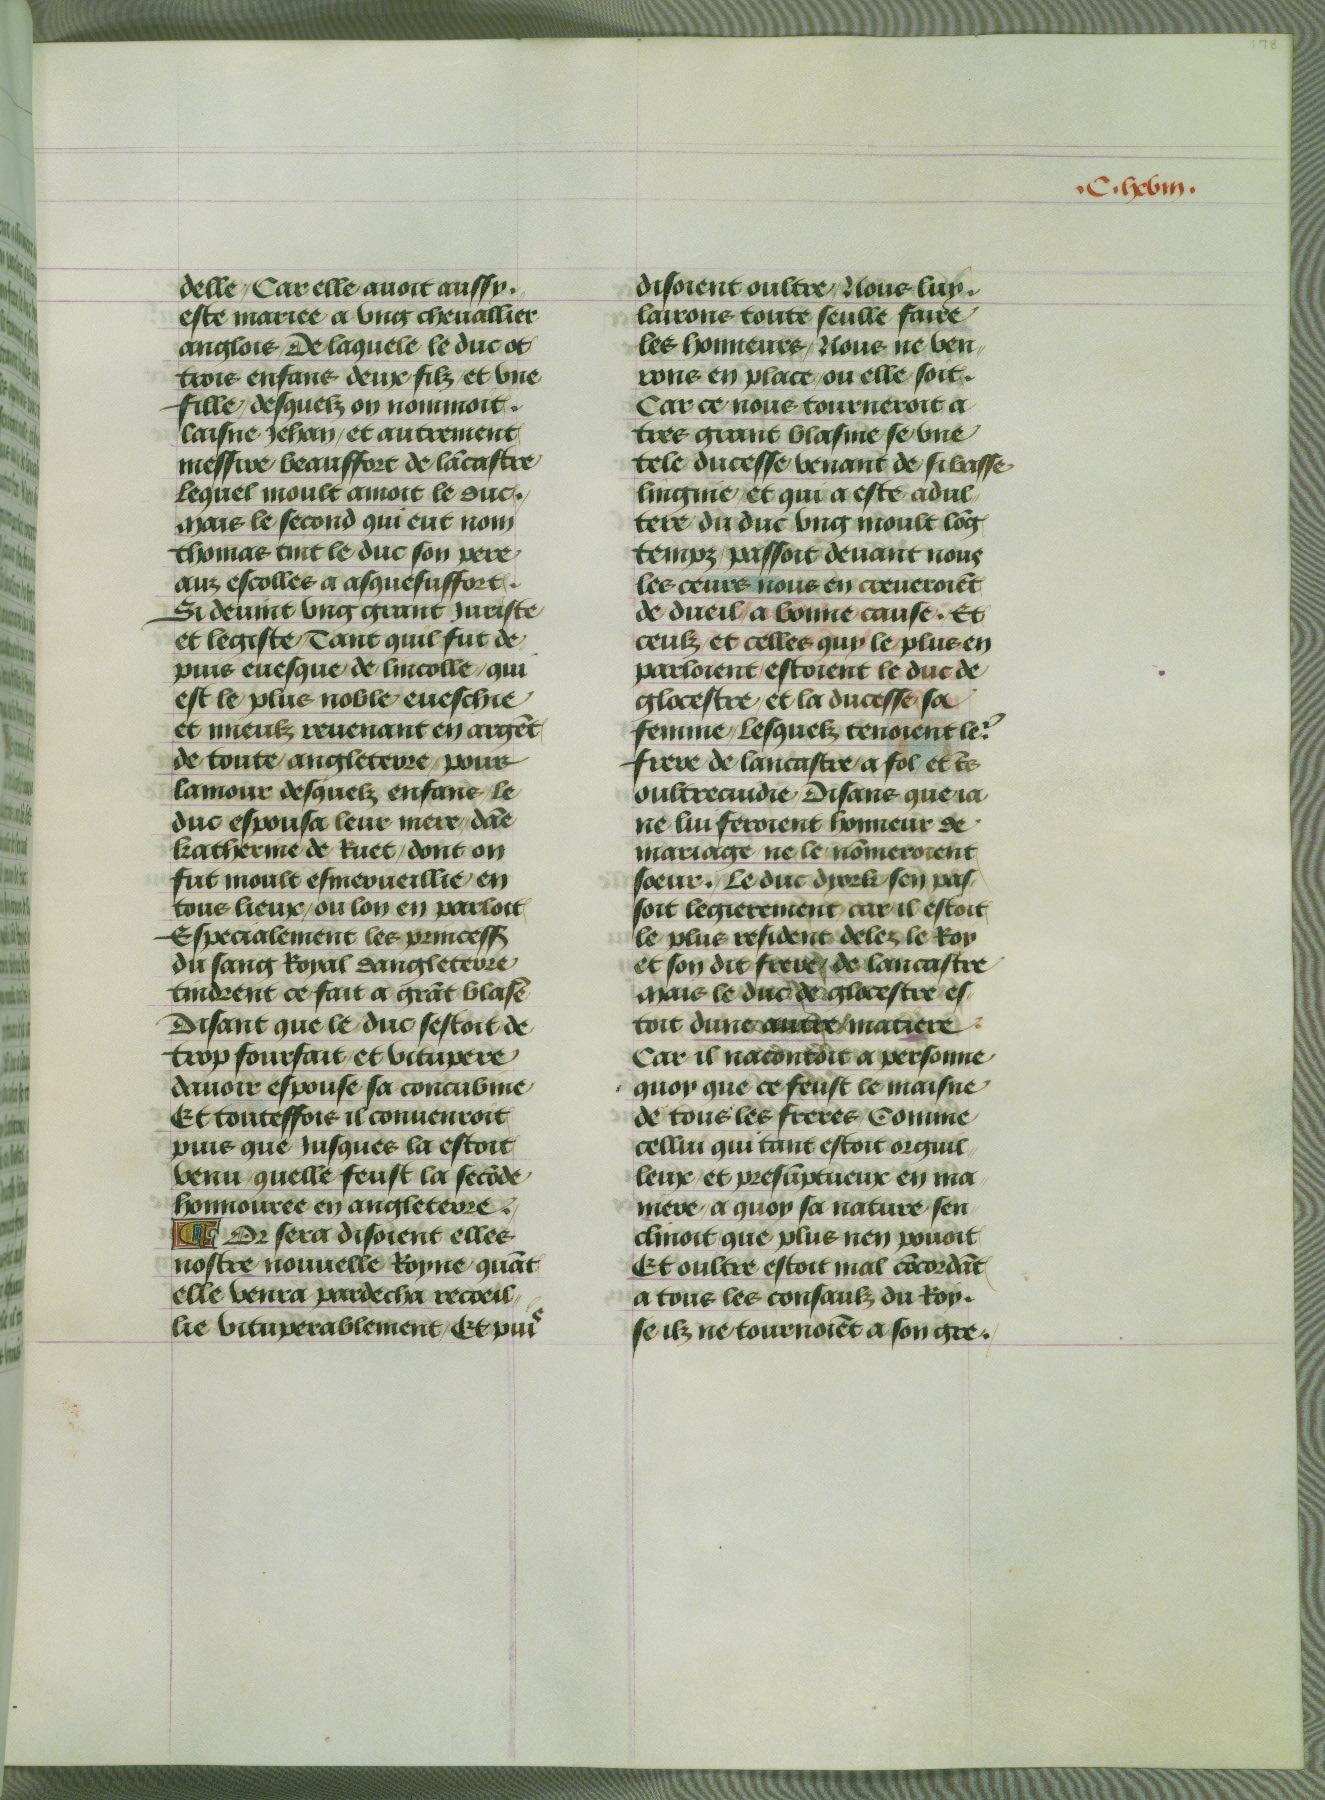 178
.C.lxviii.
delle, Car elle avoit aussy.
este mariee a vng chevallier
anglois De laquele le duc ot
trois enfans deux filz et vne
fille, desquelz on nommoit.
laisne Jehan, et autrement
messire beauffort de lācastre
Lequel moult amoit le duc.
mais le second qui eut nom
thomas tint le duc son pere
auz escolles a asquesuffort.
Si devint vng grant Juriste
et legiste, Tant quil fut de
puis evesque de lincolle, qui
est le plus noble eveschie
et mieulz revenant en argēt
de toute angleterre, pour
lamour desquelz enfans, le
duc espousa leur mere, dāe
katherine de Ruet, dont on
fut moult esmerveillie, en
tous lieux, ou lon en parloit
Especialement les princess
du sang Royal dangleterre
tindrent ce fait a grāt blasē
Disant que le duc sestoit de
trop fourfait et vitupere
davoir espouse sa concubine
Et touteffois il convenroit
puis que Jusques la estoit
venu, quelle feust la secōde
honnouree en angleterre.
Or sera disoient elles
nostre nouvelle Royne, quāt
elle venra pardecha recoeil,,
lie vituperablement, Et puis
disoient oultre, Nous luy.
lairons toute seulle faire
les honneurs, Nous ne ven,,
rons en place, ou elle soit.
Car ce nous tourneroit a
tres grant blasme, se vne
tele ducesse venant de si basse
lingnie, et qui a este adul,,
tere du duc vng moult lōg
tempz, passoit devant nous
les ceurs nous en creveroiēt
de dueil, a bonne cause. Et
ceulz et celles quy le plus en
parloient, estoient le duc de
glocestre, et la ducesse sa
femme, Lesquelz tenoient le.r
frere de lancastre, a fol et
oultrecuidie, Disans que ia
ne lui feroient honneur de
mariage ne le nōmeroient
soeur. Le duc dyork sen pas,,
soit legierement car il estoit
le plus resident delez le Roy
et son dit frere, de lancastre
mais le duc de glocestre es,,
toit dune autre matiere
Car il nacontoit a personne
quoy que ce feust le maisne
de tous les freres, Comme
cellui qui tant estoit orguil,,
leux, et presūptueux en ma
niere, a quoy sa nature sen
clinoit que plus nen povoit
Et oultre estoit mal cōcordāt
a tous les consaulz du Roy.
se ilz ne tournoiēt a son gre.